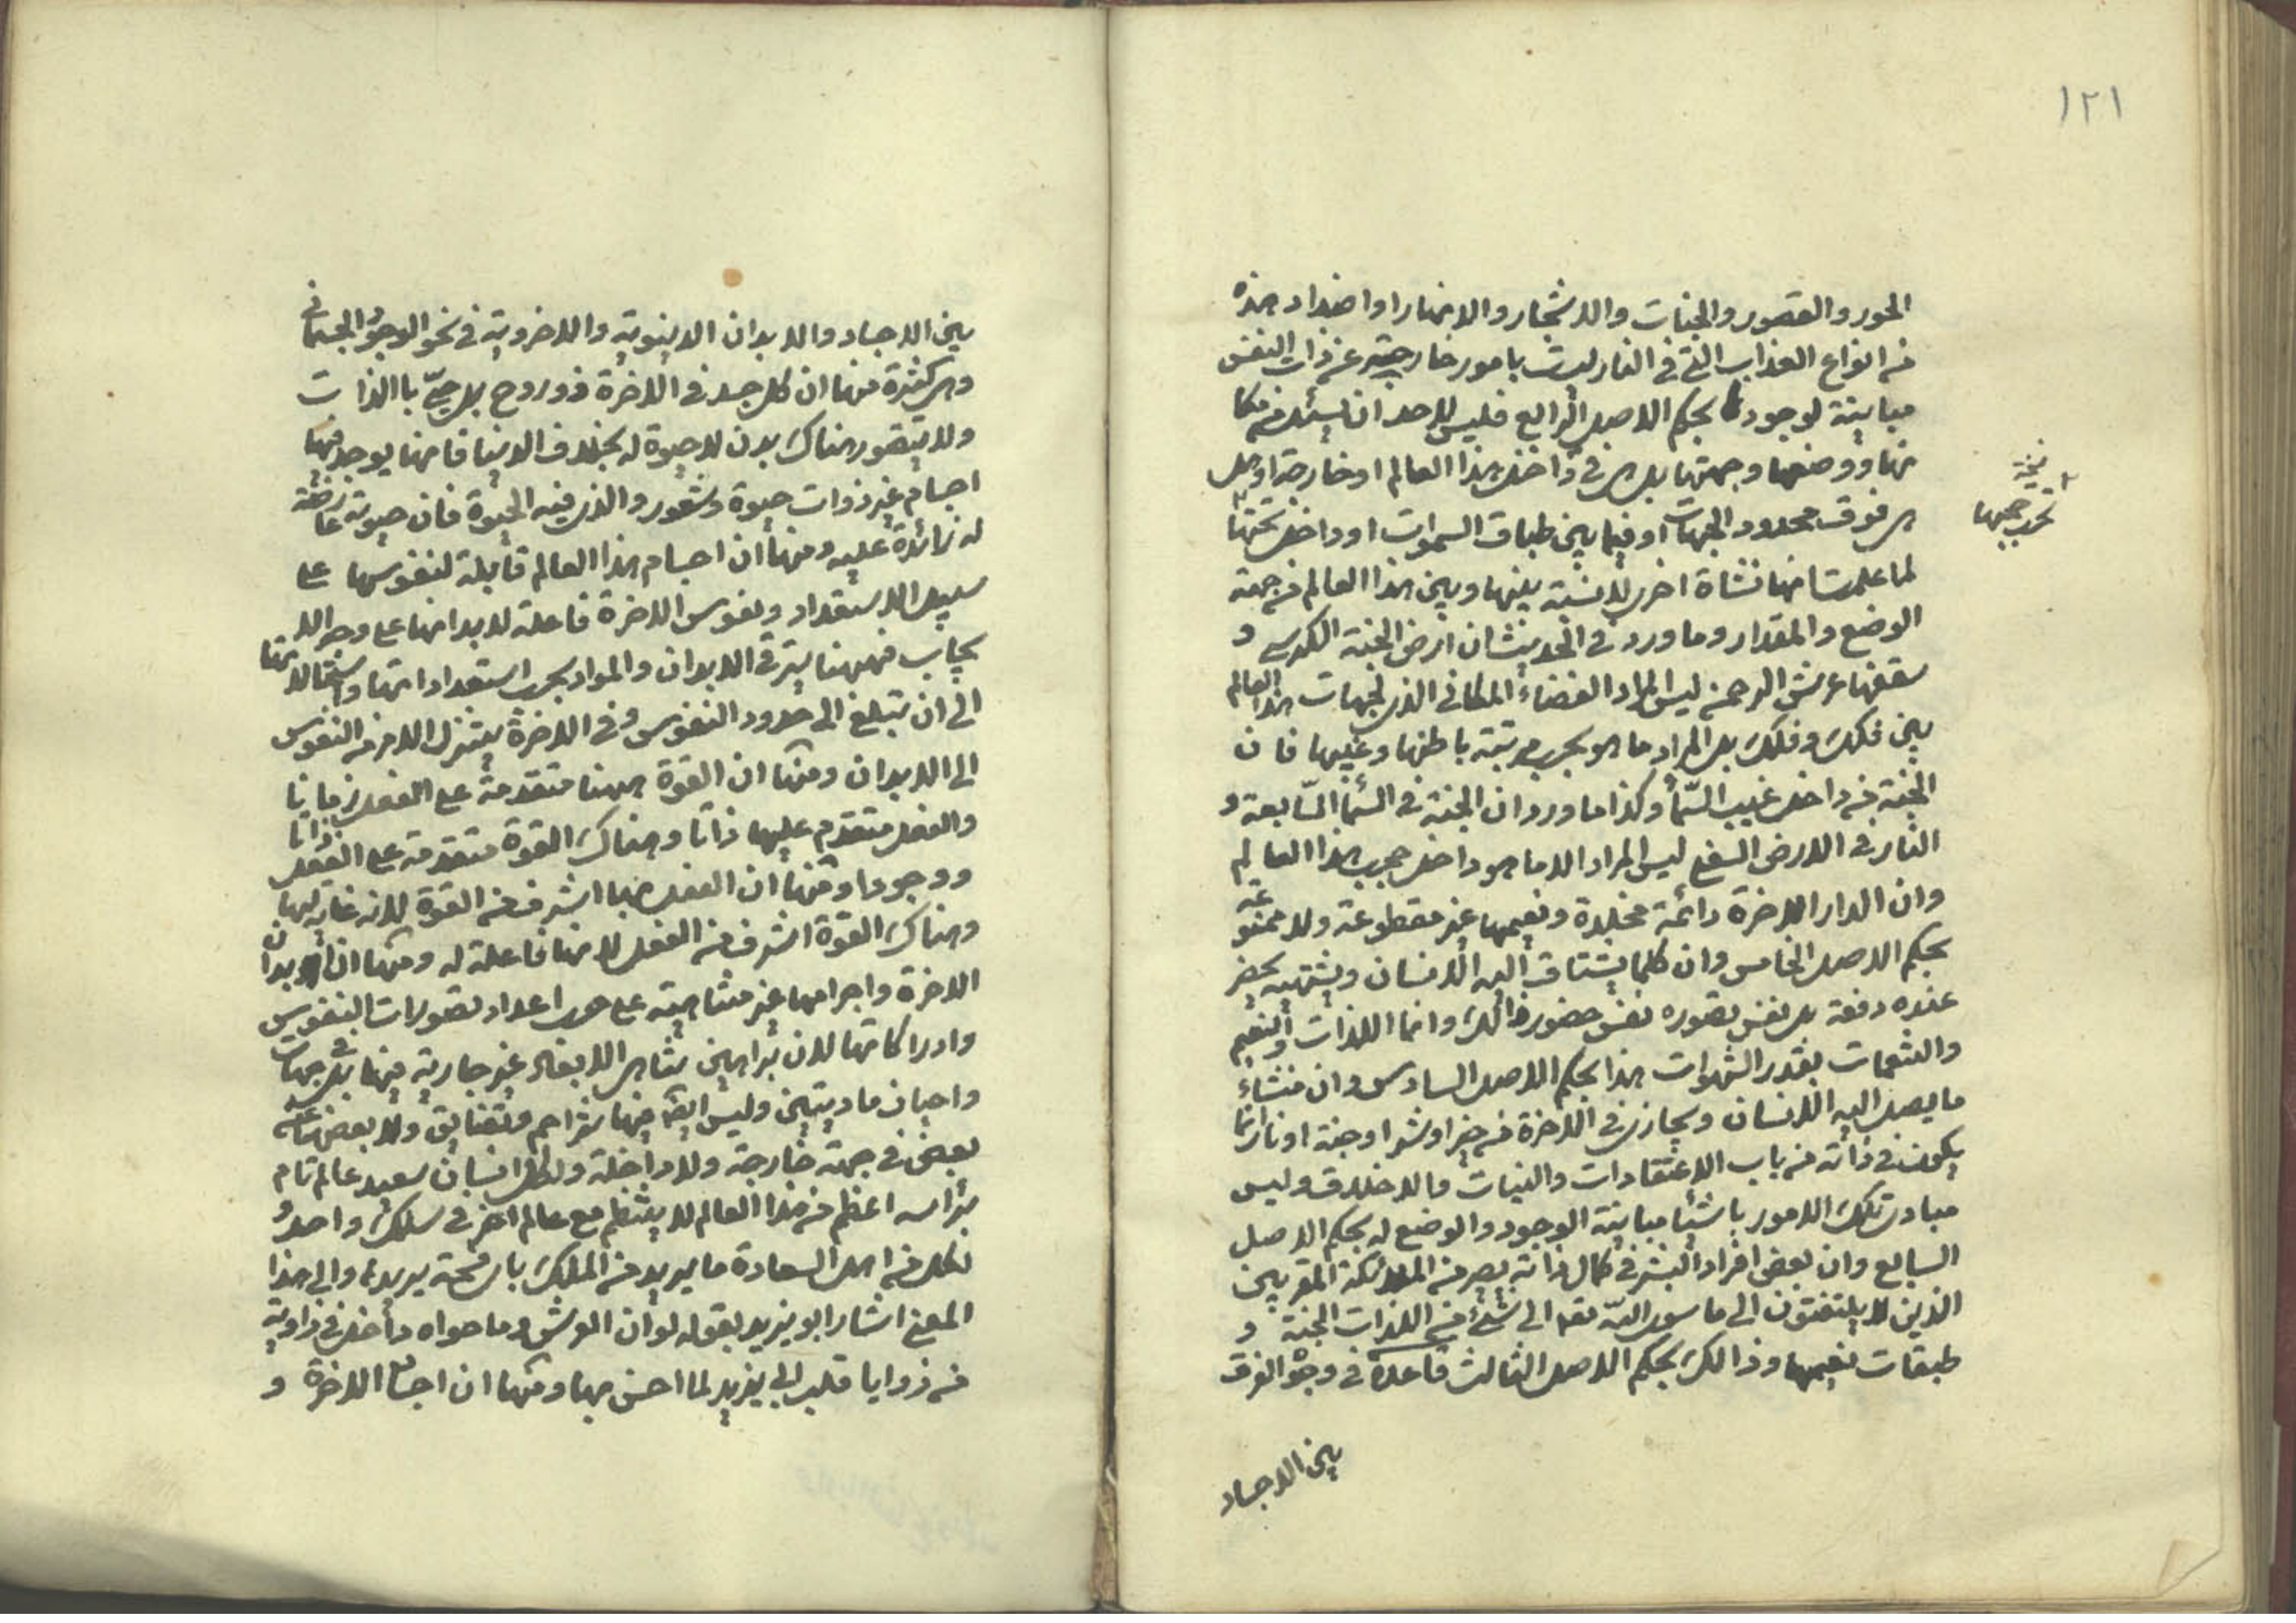 ١٢١
الحور والقصور والجنات والاشجار والانهار واضداد هذه
من انواع العذاب التى فى النار ليست بامور خارجية عن ذات النفس
مباينة لوجودها بحكم الاصل الرابع فليس لاحد ان يسئل من مكا
نها ووضعها وجهتها بل هى فى داخل هذا العالم او خارجة او هل
هى فوق محدود الجهات او فيما بين طباق السموات او داخل تحتها
نسخة
تحت حجبها
لما علمت انها نشاة اخرى لا نسبة بينها وبين هذا العالم من جهة
الوضع والمقدار وما ورد فى الحديث ان ارض الجنة الكرسى و
سقفها عرش الرحمن ليس المراد الفضاء المكانى الذى لجهات هذا العالم
بين فلك وفلك بل المراد ما هو بحسب مرتبة باطنها وغيبها فان
الجنة من داخل غيب السّمأ وكذا ما ورد ان الجنة فى السّمأ السّابعة و
النار فى الارض السفلى ليس المراد الا ما هو داخل حجب هذا العالم
وان الدار الاخرة دائمة مخلدة ونعيمها غير مقطوعة ولا ممنوعة
بحكم الاصل الخامس وان كلما يشتاق اليه الانسان ويشتهيه يحضر
عنده دفعة بل نفس تصوره نفس حضور ذالك وانما اللذات والنعيم
والتنعمات بقدر الشهوات هذا بحكم الاصل السادس وان منشاء
ما يصل اليه الانسان ويجازى فى الاخرة من خير او شر او جنة او نار انما
يكون فى ذاته من باب الاعتقادات والنيات والاخلاق وليس
مبادى تلك الامور باشيأ مباينة الوجود والوضع له بحكم الاصل
السابع وان بعض افراد البشر فى كمال ذاته يصير من الملائكة المقربين
الذين لا يلتفتون الى ما سوى اللّه تعه الى شئ من اللذات الجنة و
طبقات نعيمها وذالك بحكم الاصل الثالث قاعدة فى وجوه الفرق
بين الاجساد
بين الاجساد والابدان الدينوية والاخروية فى نحو الوجود الجسمانى
وهى كثيرة منها ان كل جسد فى الاخرة ذو روح بل حىّ با الذات
ولا يتصور هناك بدن لا حيوة له بخلاف الدينا فانها يوجد فيها
اجسام غير ذوات حيوة وشعور والذى فيه الحيوة فان حيوته عارضة
له زائدة عليه ومنها ان اجسام هذا العالم قابلة لنفوسها على
سبيل الاستعداد ونفوس الاخرة فاعلة لابدانها على وجه الا
يجاب فههنا يترقى الابدان والمواد بحسب استعداداتها واستحالاتها
الى ان تبلغ الى حدود النفوس وفى الاخرة يتنزل الامر من النفوس
الى الابدان ومنها ان القوة ههنا متقدمة على الفعل زمانا
والفعل متقدم عليها ذاتا وهناك القوة متقدمة على الفعل ذاتا
ووجودا ومنها ان الفعل هنا اشرف من القوة لانه غاية لها
وهناك القوة اشرف من الفعل لانها فاعلة له ومنها ان ابدان
الاخرة واجرامها غير متناهية على حسب اعداد تصورات النفوس
وادراكاتها لان براهين تناهى الابعاد غير جارية فيها بل فى جهات
واحيان ماديتين وليس ايضا فيها تزاحم وتضايق ولا بعضها عن
بعض فى جهة خارجة ولا داخلة ولكل انسان سعيد عالم تام
براسه اعظم من هذا العالم لا ينتظم مع عالم اخر فى سلك واحد و
لكل من اهل السعادة ما يريد من الملك باى فسحة يريدها والى هذا
المعنى اشار ابو يزيد بقوله لو ان العرش وما حواه داخل فى زاوية
من زوايا قلب ابى يزيد لما احس بها ومنها ان اجسام الاخرة و